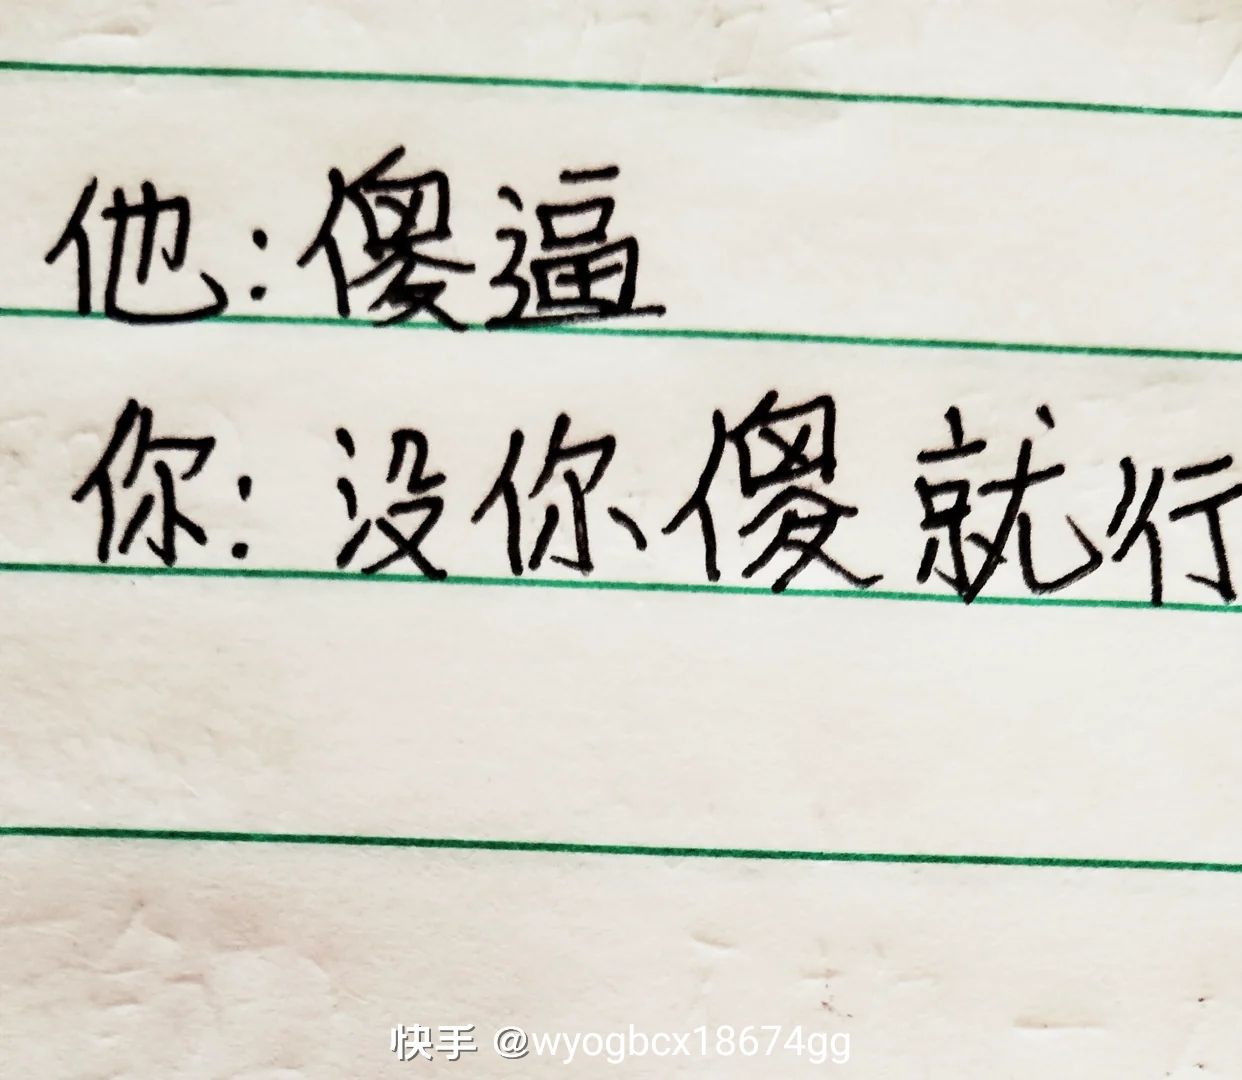 他:傻逼
你:没你傻就行
快手 @wyogbcx18674gg